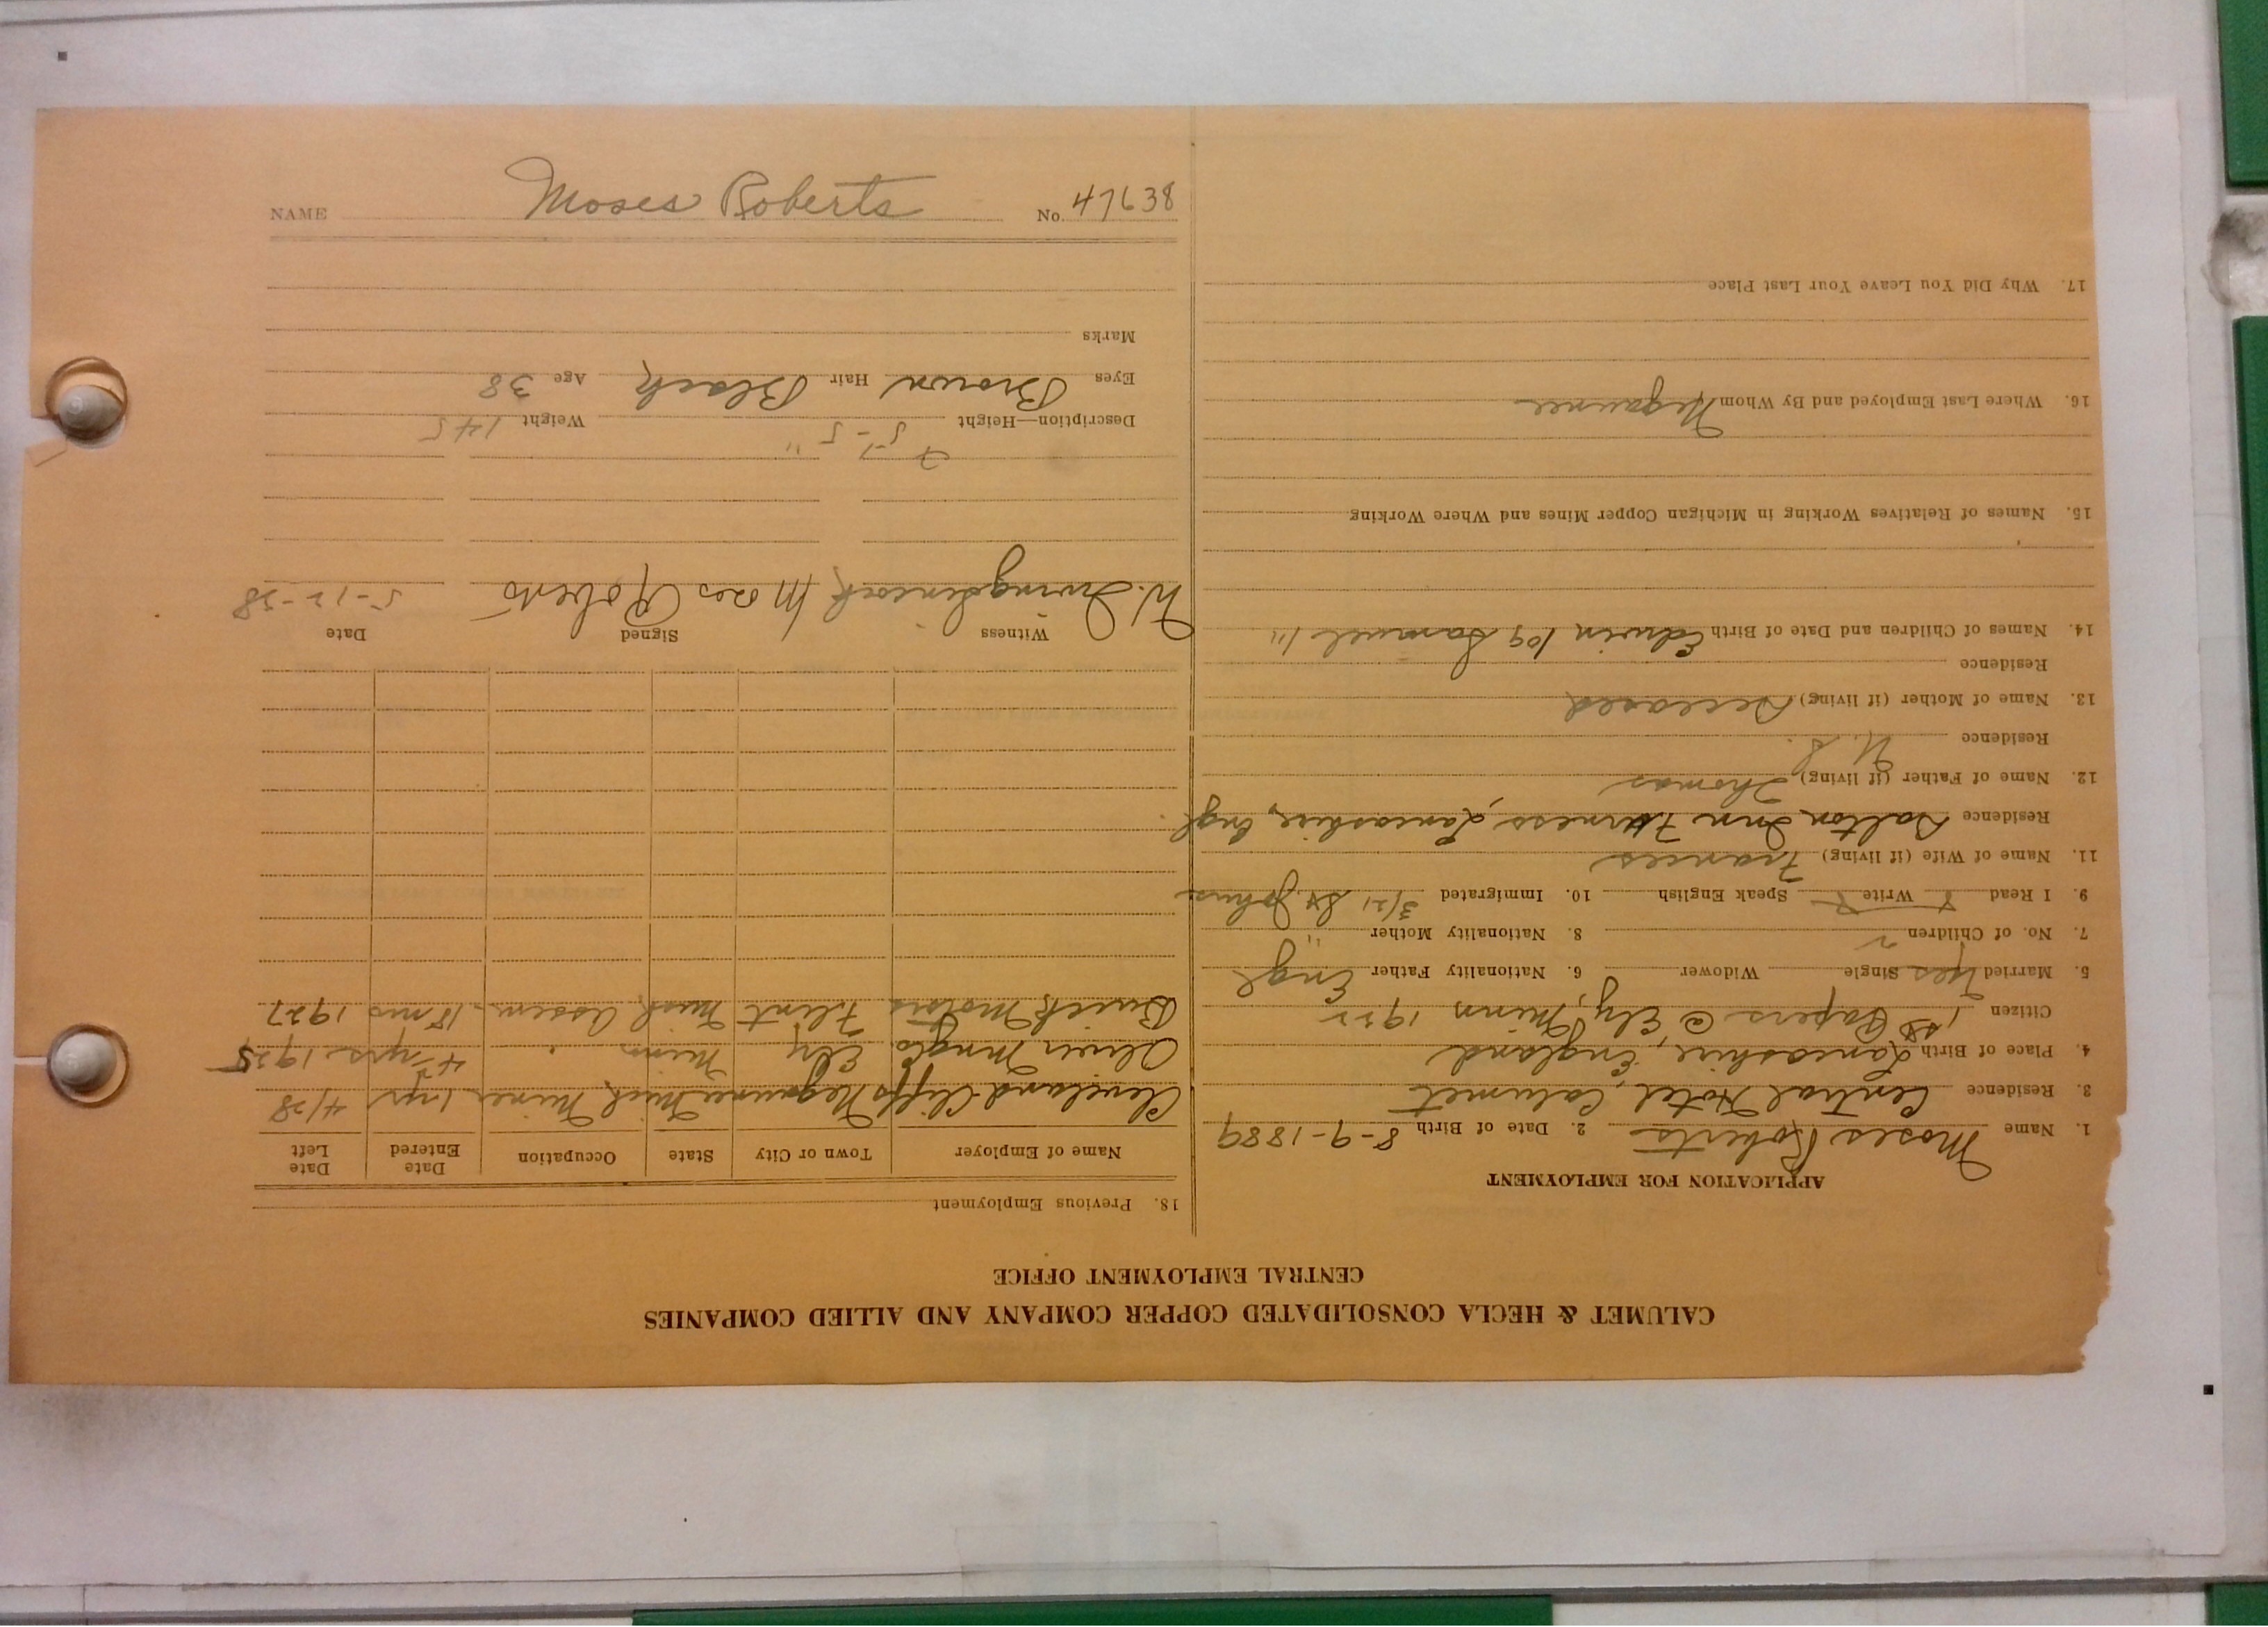 CALUMET & HECLA CONSOLIDATED COPPER COMPANY AND ALLIED COMPANIES
CENTRAL EMPLOYMENT OFFICE
APPLICATION FOR EMPLOYMENT
1. Name Moses Roberts 2. Date of Birth 8-9-1889
3. Residence Central Hotel, Calumet
4. Place of Birth Lancashire, England
Citizen 1st Papers @ Ely, Minn 1922
5. Married Yes Single Widower 6. Nationality Father Engl
7. No. of Children 2 8. Nationality Mother "
9. I Read Write Speak English 10. Immigrated 3/21 St. Johns
11. Name of Wife (if living) Frances
Residence Dalton Inn Furness, Lancashire, Engl.
12. Name of Father (if living) Thomas
Residence U.S.
13. Name of Mother (if living) Deceased
Residence
14. Names of Children and Date of Birth Edwin 109 Samuel 1"
15. Names of Relatives Working in Michigan Copper Mines and Where Working
16. Where Last Employed and By Whom Negaunee
17. Why Did You Leave Your Last Place
18. Previous Employment
Name of Employer Town or City State Occupation Date Entered Date Left
Cleveland Cliffs Negaunee Mich Miner 1 yr 4/28
Oliver Mng Co. Ely Minn " 4 yrs 1925
Buick Motors Flint Mich Assem. 18 mos 1927
Witness Signed Date
W. Moses Roberts 5-12-28
Description—Height 5'-5" Weight 145
Eyes Brown Hair Black Age 38
Marks
NAME Moses Roberts No. 47638